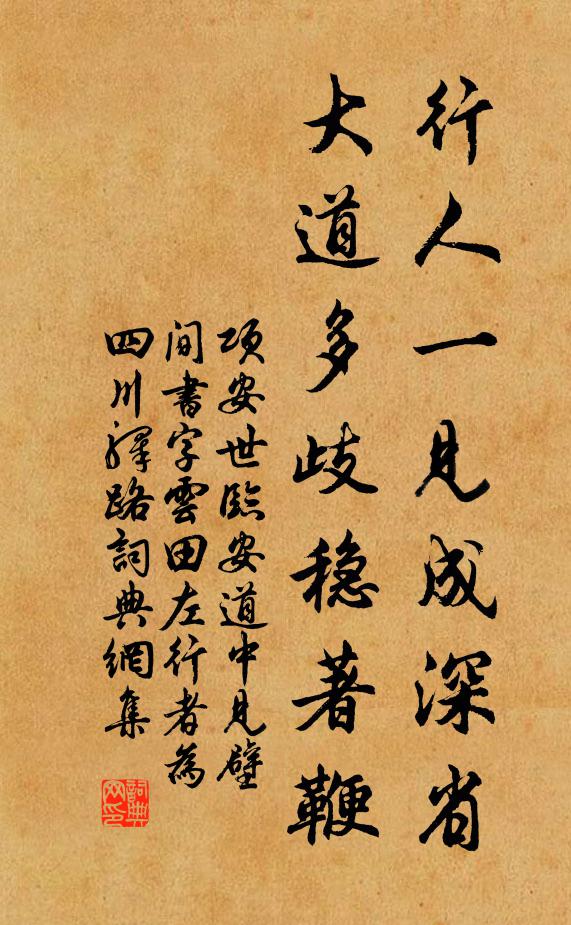 行人一見成深省
大道多歧稳著鞭
项安世臨安道中見壁
间書字雲田左行者為
四川驛路詞典網集
詞典网印